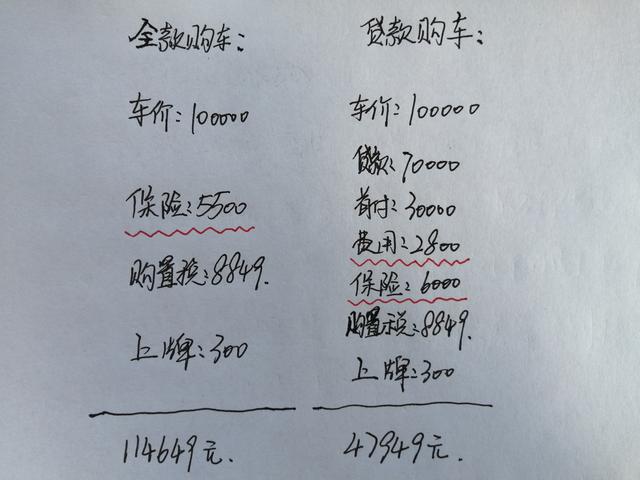 全款购车:
车价:100000
保险:5500
购置税:8849.
上牌:300
114649元.
贷款购车:
车价:100000
贷款:70000
首付:30000
费用:2800
保险:6000
购置税:8849.
上牌:300
47949元.